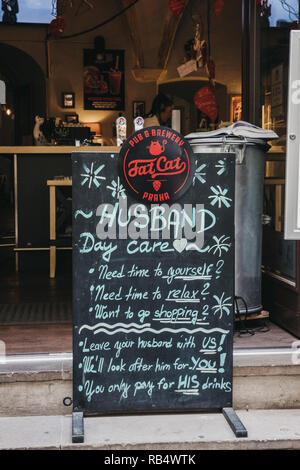 PUB & BREWERY
Fat Cat
PRAHA
~ HUSBAND ~
Day care ♡ ~
• Need time to yourself?
• Need time to relax?
• Want to go shopping?
• Leave your husband with US!
• We'll look after him for You!
• You only pay for HIS drinks
alamy
Image ID: RB4WTK
www.alamy.com